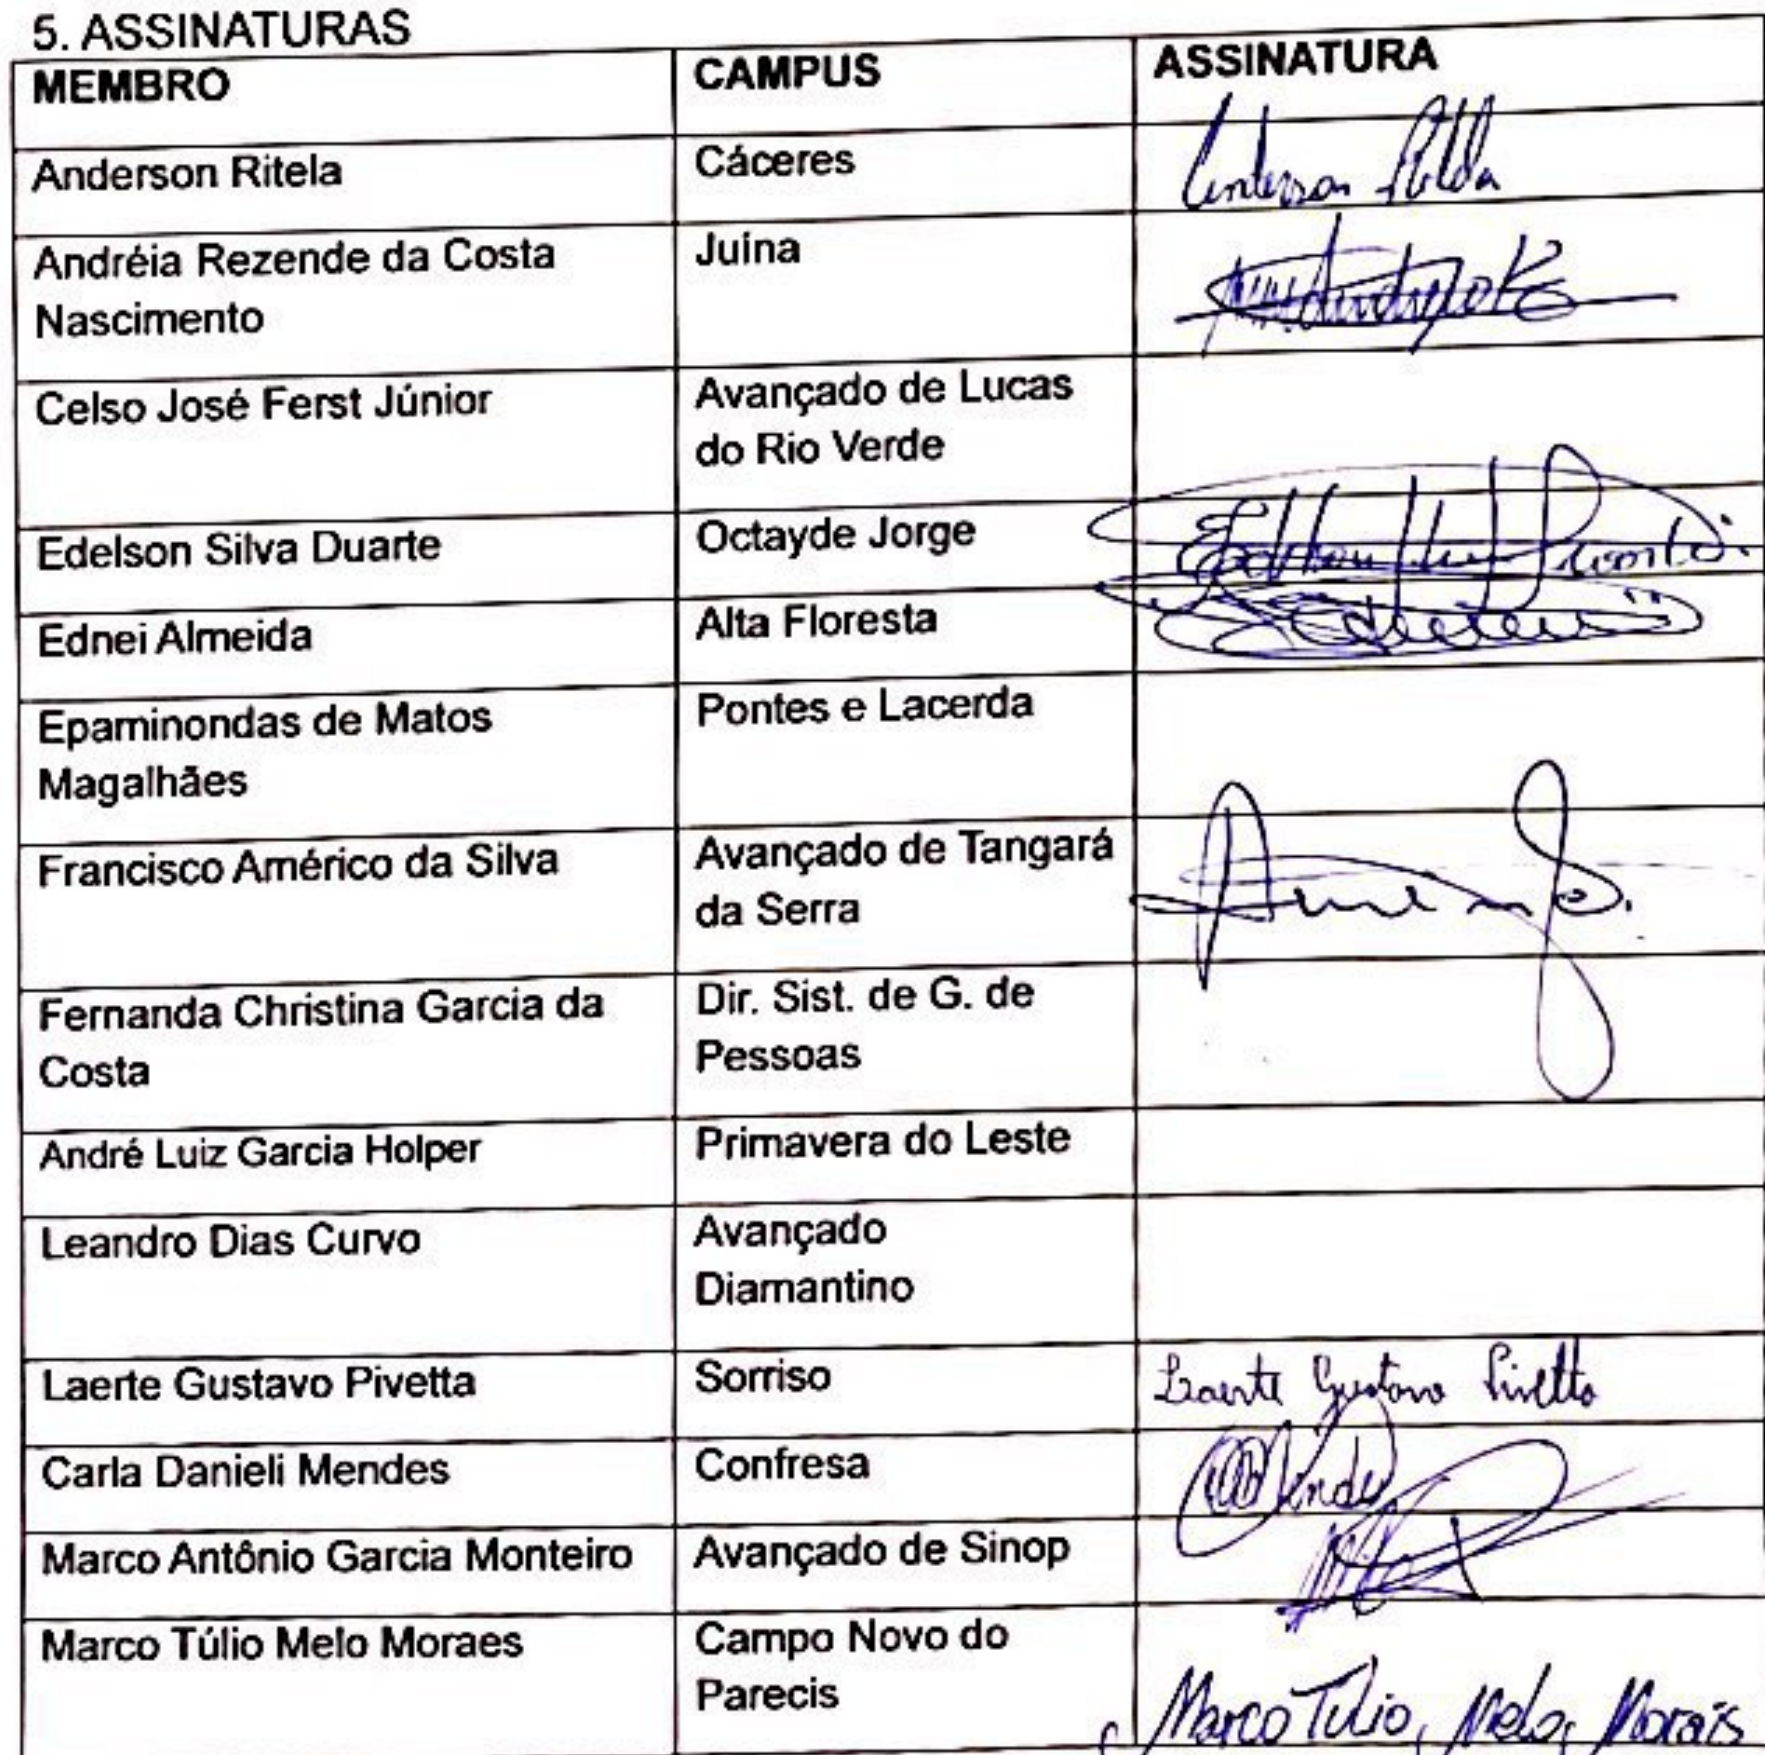 5. ASSINATURAS
MEMBRO CAMPUS ASSINATURA
Anderson Ritela Cáceres Anderson
Andréia Rezende da Costa Juína
Nascimento
Celso José Ferst Júnior Avançado de Lucas
do Rio Verde
Edelson Silva Duarte Octayde Jorge
Ednei Almeida Alta Floresta
Epaminondas de Matos Pontes e Lacerda
Magalhães
Francisco Américo da Silva Avançado de Tangará
da Serra
Fernanda Christina Garcia da Dir. Sist. de G. de
Costa Pessoas
André Luiz Garcia Holper Primavera do Leste
Leandro Dias Curvo Avançado
Diamantino
Laerte Gustavo Pivetta Sorriso Laerte Gustavo Pivetta
Carla Danieli Mendes Confresa
Marco Antônio Garcia Monteiro Avançado de Sinop
Marco Túlio Melo Moraes Campo Novo do
Parecis Marco Túlio Melo Morais